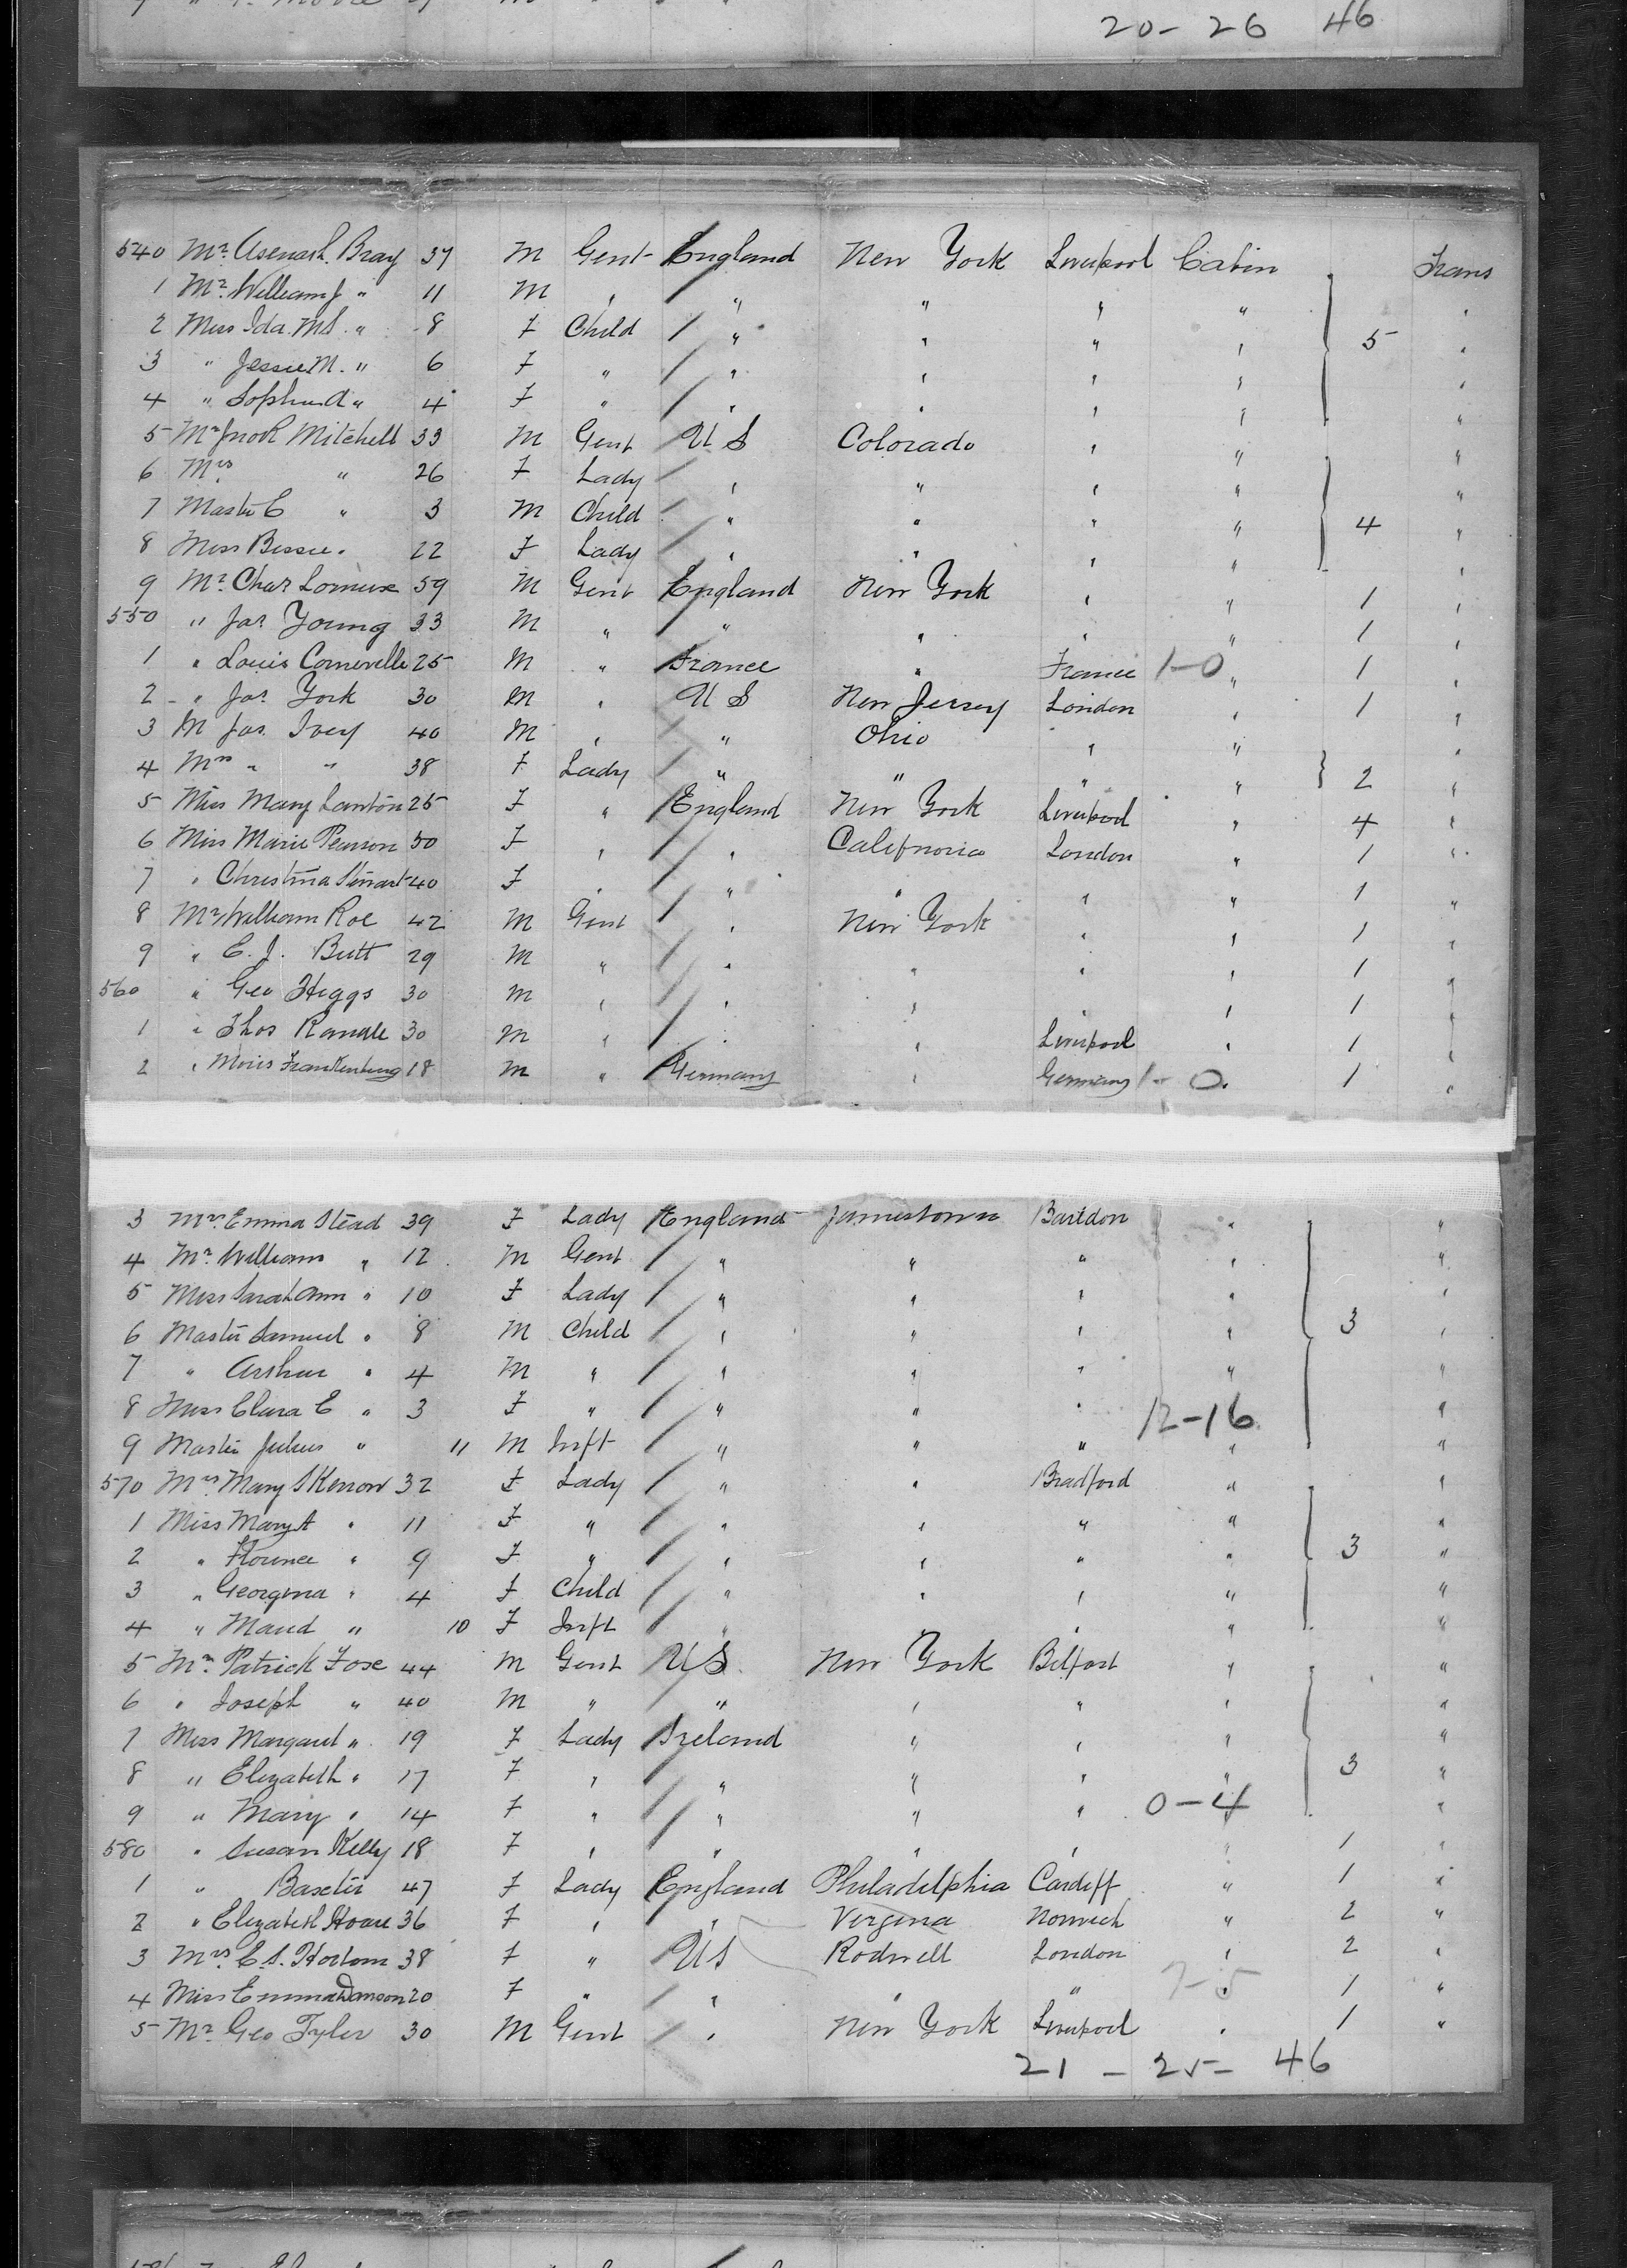 20 - 26 46
540 Mr. Asenash. Bray 37 M Gent England New York Liverpool Cabin Trans
1 Mr. William J " 11 M " " " " "
2 Miss Ida. M S. " 8 F Child " " " " 5 "
3 " Jessie M. " 6 F " " " " " "
4 " " 4 F " " " " " "
5 Mr Jno R Mitchell 33 M Gent U S Colorado " " "
6 Mrs " 26 F Lady " " " " "
7 Master C " 3 M Child " " " " 4 "
8 Miss Bessie " 22 F Lady " " " " "
9 Mr. Chas 59 M Gent England New York " " 1 "
550 " Jas. Young 33 M " " " " " 1 "
1 " Louis Comerville 25 M " France " France 1-0 " 1 "
2 " Jas. York 30 M " U S New Jersey London " 1 "
3 M Jas. Ivey 40 M " " Ohio " " "
4 Mrs " " 38 F Lady " " " " 2 "
5 Miss Mary Lanton 25 F " England New York Liverpool " 4 "
6 Miss Marie Pearson 50 F " " California London " 1 "
7 " Christina Stewart 40 F " " " " " 1 "
8 Mr William Roe 42 M Gent " New York " " 1 "
9 " C. J. Butt 29 M " " " " " 1 "
560 " Geo Higgs 30 M " " " " " 1 "
1 " Thos Randle 30 M " " " Liverpool " 1 "
2 " Moris Frankenburg 18 M " Germany " Germany 1 - 0 " 1 "
3 Mrs. Emma Stead 39 F Lady England Jamestown Baildon " "
4 Mr. William " 12 M Gent " " " " "
5 Miss Sarah Ann " 10 F Lady " " " " "
6 Master Samuel " 8 M Child " " " " 3 "
7 " Arthur " 4 M " " " " " "
8 Miss Clara E " 3 F " " " " 12-16 "
9 Master Julius " 11 M Inft " " " " "
570 Mrs. Mary Skerrow 32 F Lady " " Bradford " "
1 Miss Mary A " 11 F " " " " " "
2 " Florence " 9 F " " " " " 3 "
3 " Georgina " 4 F Child " " " " "
4 " Maud " 10 F Inft " " " " "
5 Mr. Patrick Foxe 44 M Gent U S New York Belfast " "
6 " Joseph " 40 M " " " " " "
7 Miss Margaret " 19 F Lady Ireland " " " "
8 " Elizabeth " 17 F " " " " " 3 "
9 " Mary " 14 F " " " " 0-4 "
580 " Susan Kelly 18 F " " " " " 1 "
1 " Baxter 47 F Lady England Philadelphia Cardiff " 1 "
2 " Elizabeth Hoare 36 F " " Vergina Norwich " 2 "
3 Mrs. C. S. Hortom 38 F " U S Rodwell London " 2 "
4 Miss Emma Danson 20 F " " " " 7-5 1 "
5 Mr. Geo Tyler 30 M Gent " New York Liverpool " 1 "
21 - 25 - 46